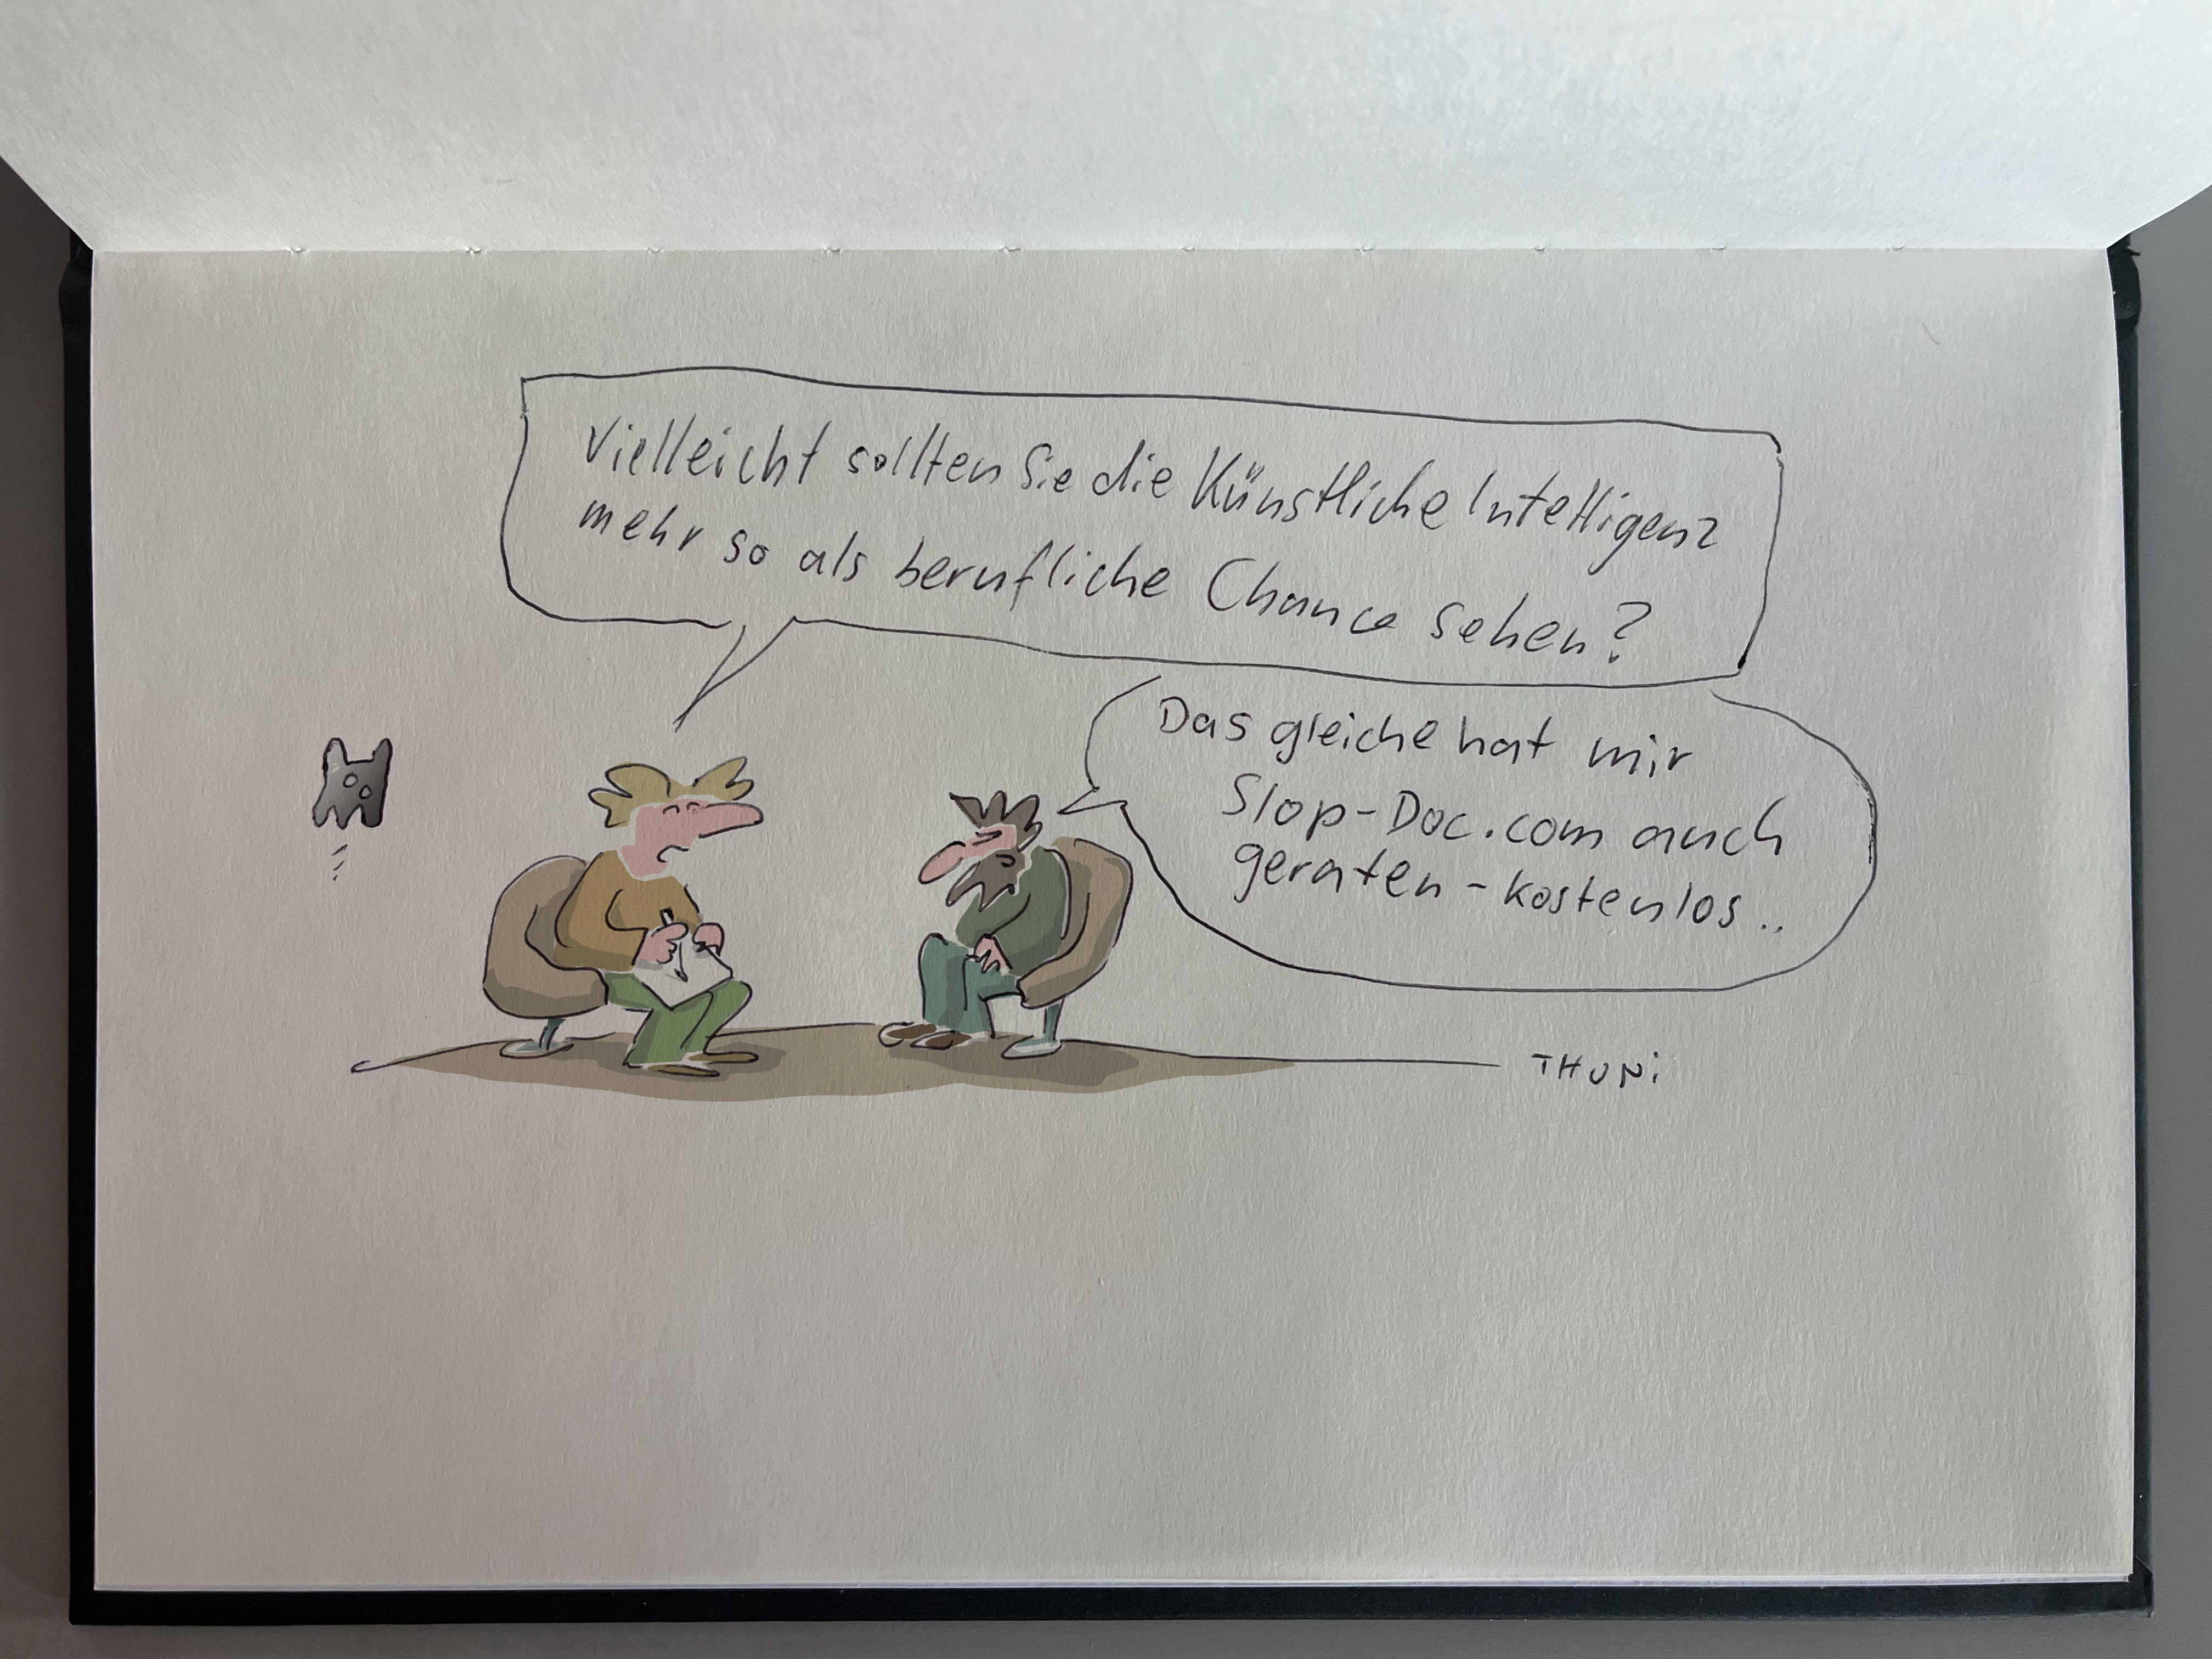 Vielleicht sollten Sie die Künstliche Intelligenz
mehr so als berufliche Chance sehen?
Das gleiche hat mir
Slop-Doc.com auch
geraten - kostenlos..
THUNi